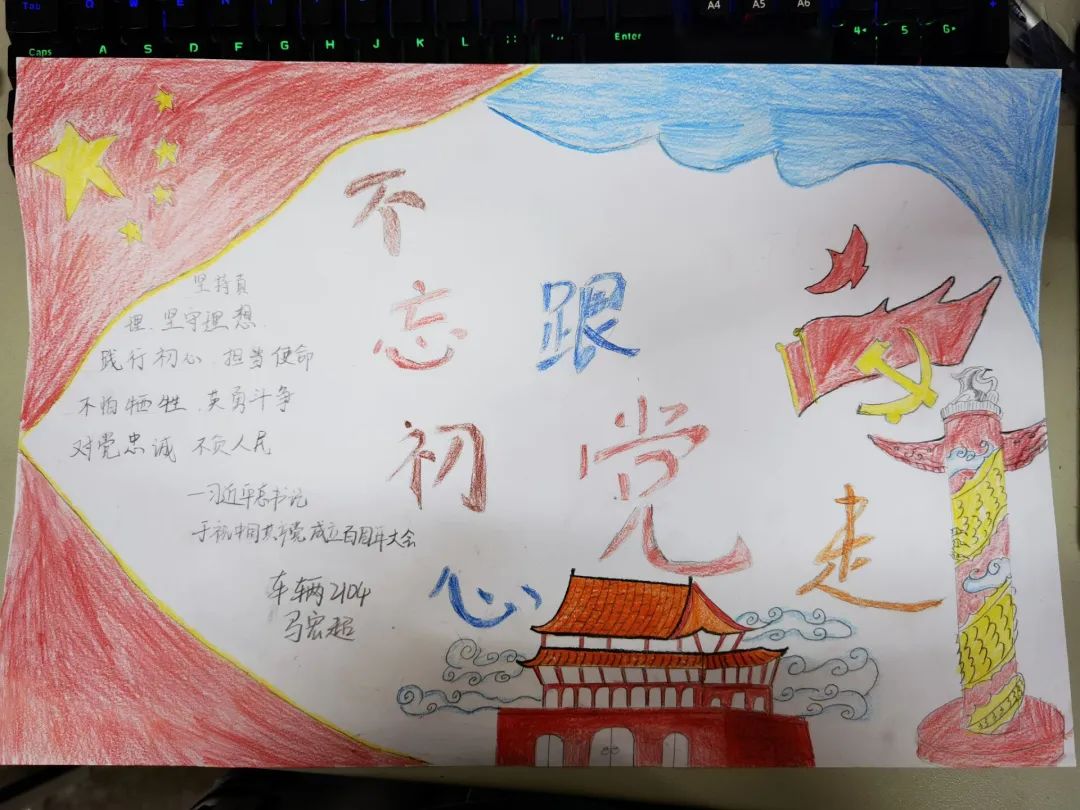 Tab Q W E
A4 A5 A6
Caps A S D F G H J K L Enter 4 5 6
不忘初心
跟党走
坚持真
理、坚守理想
践行初心、担当使命
不怕牺牲、英勇斗争
对党忠诚 不负人民
—习近平总书记
于祝中国共产党成立百周年大会
车辆2104
马宏超